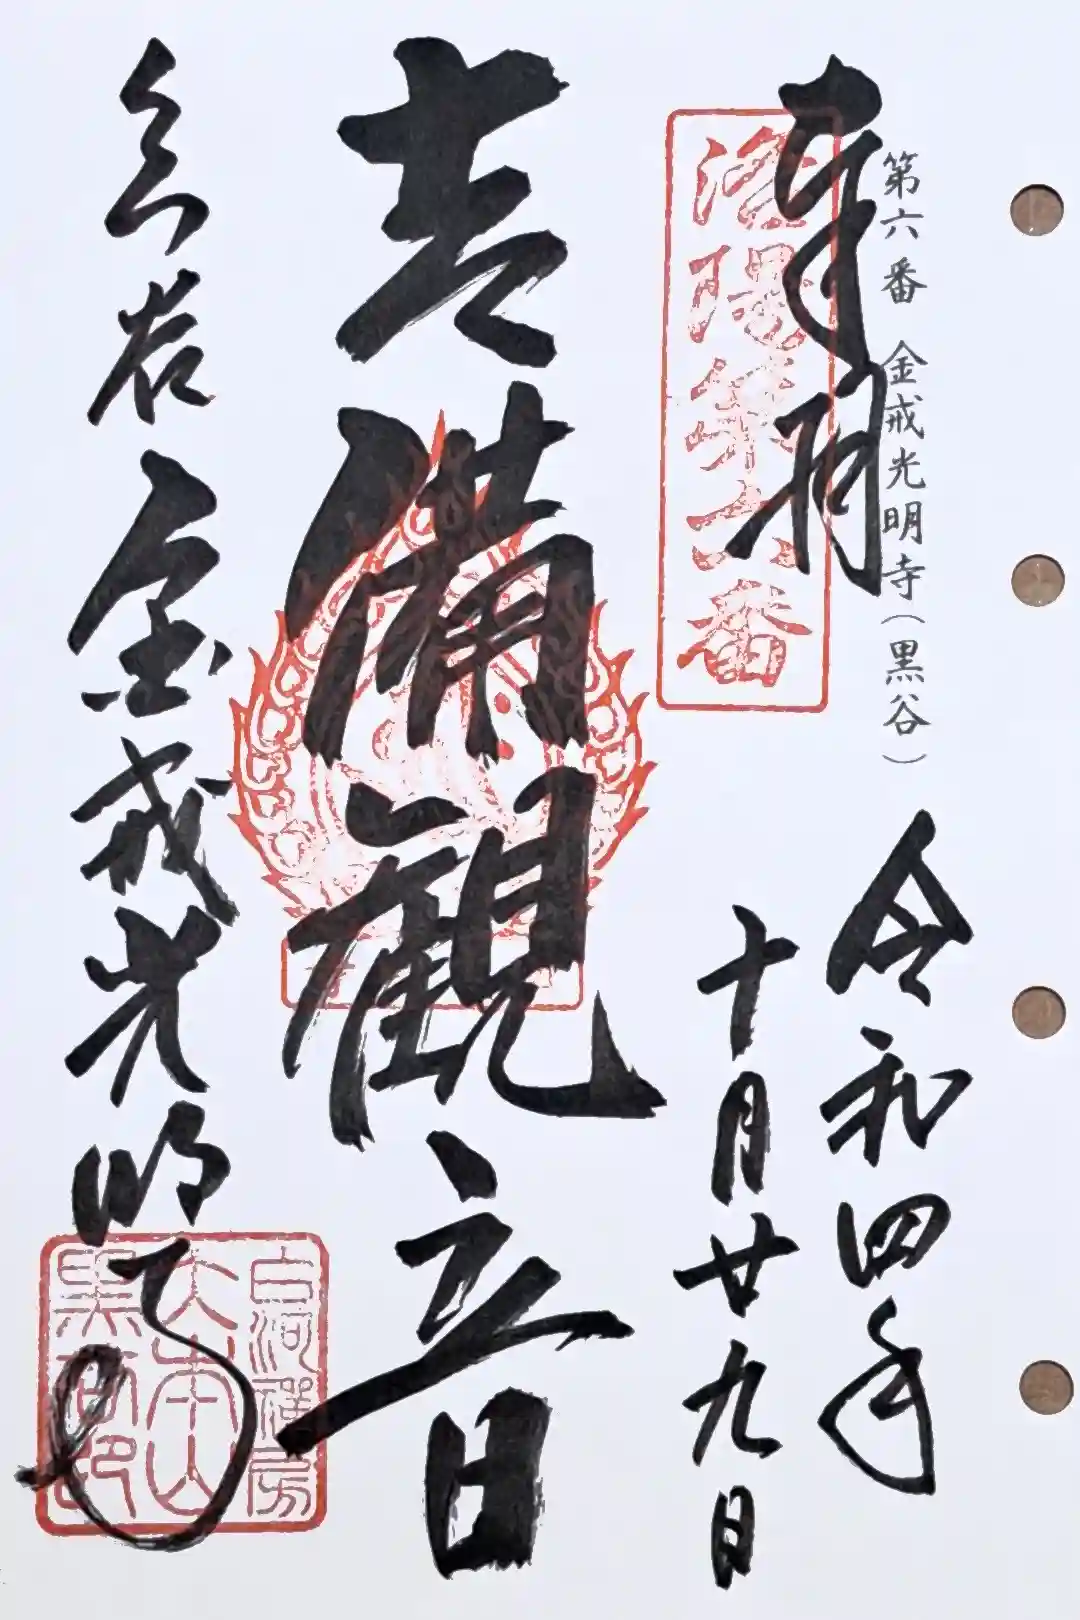 第六番 金戒光明寺（黒谷）
奉拝
洛陽第六番
令和四年
十月廿九日
吉備観音
黒谷 金戒光明寺
白河禅房
大本山
黒谷印